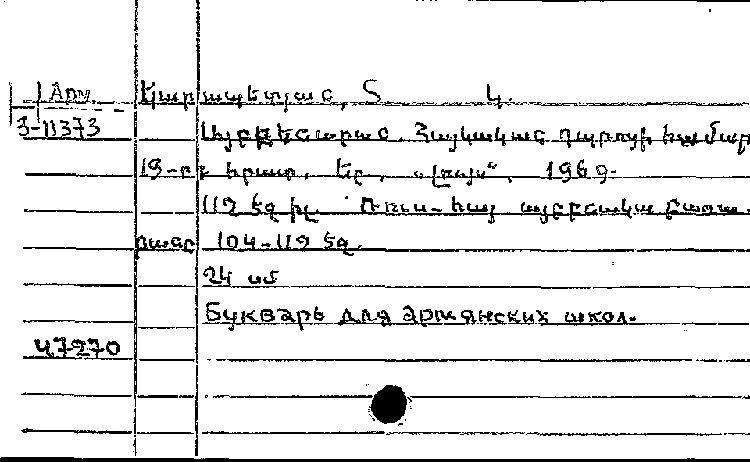 Арм. Կարապետյան, Տ. Կ.
3-11373 Այբբենարան. Հայկական դպրոցի համար
19-րդ հրատ. Եր., «Լույս», 1969.
112 էջ իլ. Ռուս-հայ այբբենական բառա-
րան 104-112 էջ.
24 սմ
Букварь для армянских школ.
47270